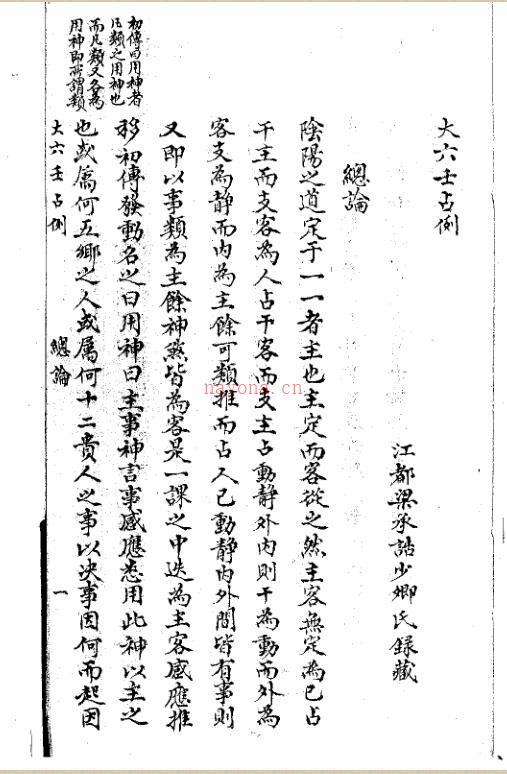 大六壬占例
江都梁承誥少卿氏錄藏
總論
陰陽之道定于一一者主也主定而客從之然主客無定為己占
干主而支客為人占干客而支主占動靜外內則干為動而外為
客支為靜而內為主餘可類推而占人己動靜內外間皆有事則
又即以事類為主餘神煞皆為客是一課之中迭為主客感應推
移初傳發動名之曰用神曰主事神言事感應悉用此神以主之
也或屬何五鄉之人或屬何十二貴人之事以决事因何而起因
初傳曰用神者
凡類之用神也
而凡類又各為
用神即所謂類
大六壬占例
總論
一
nayong.cn